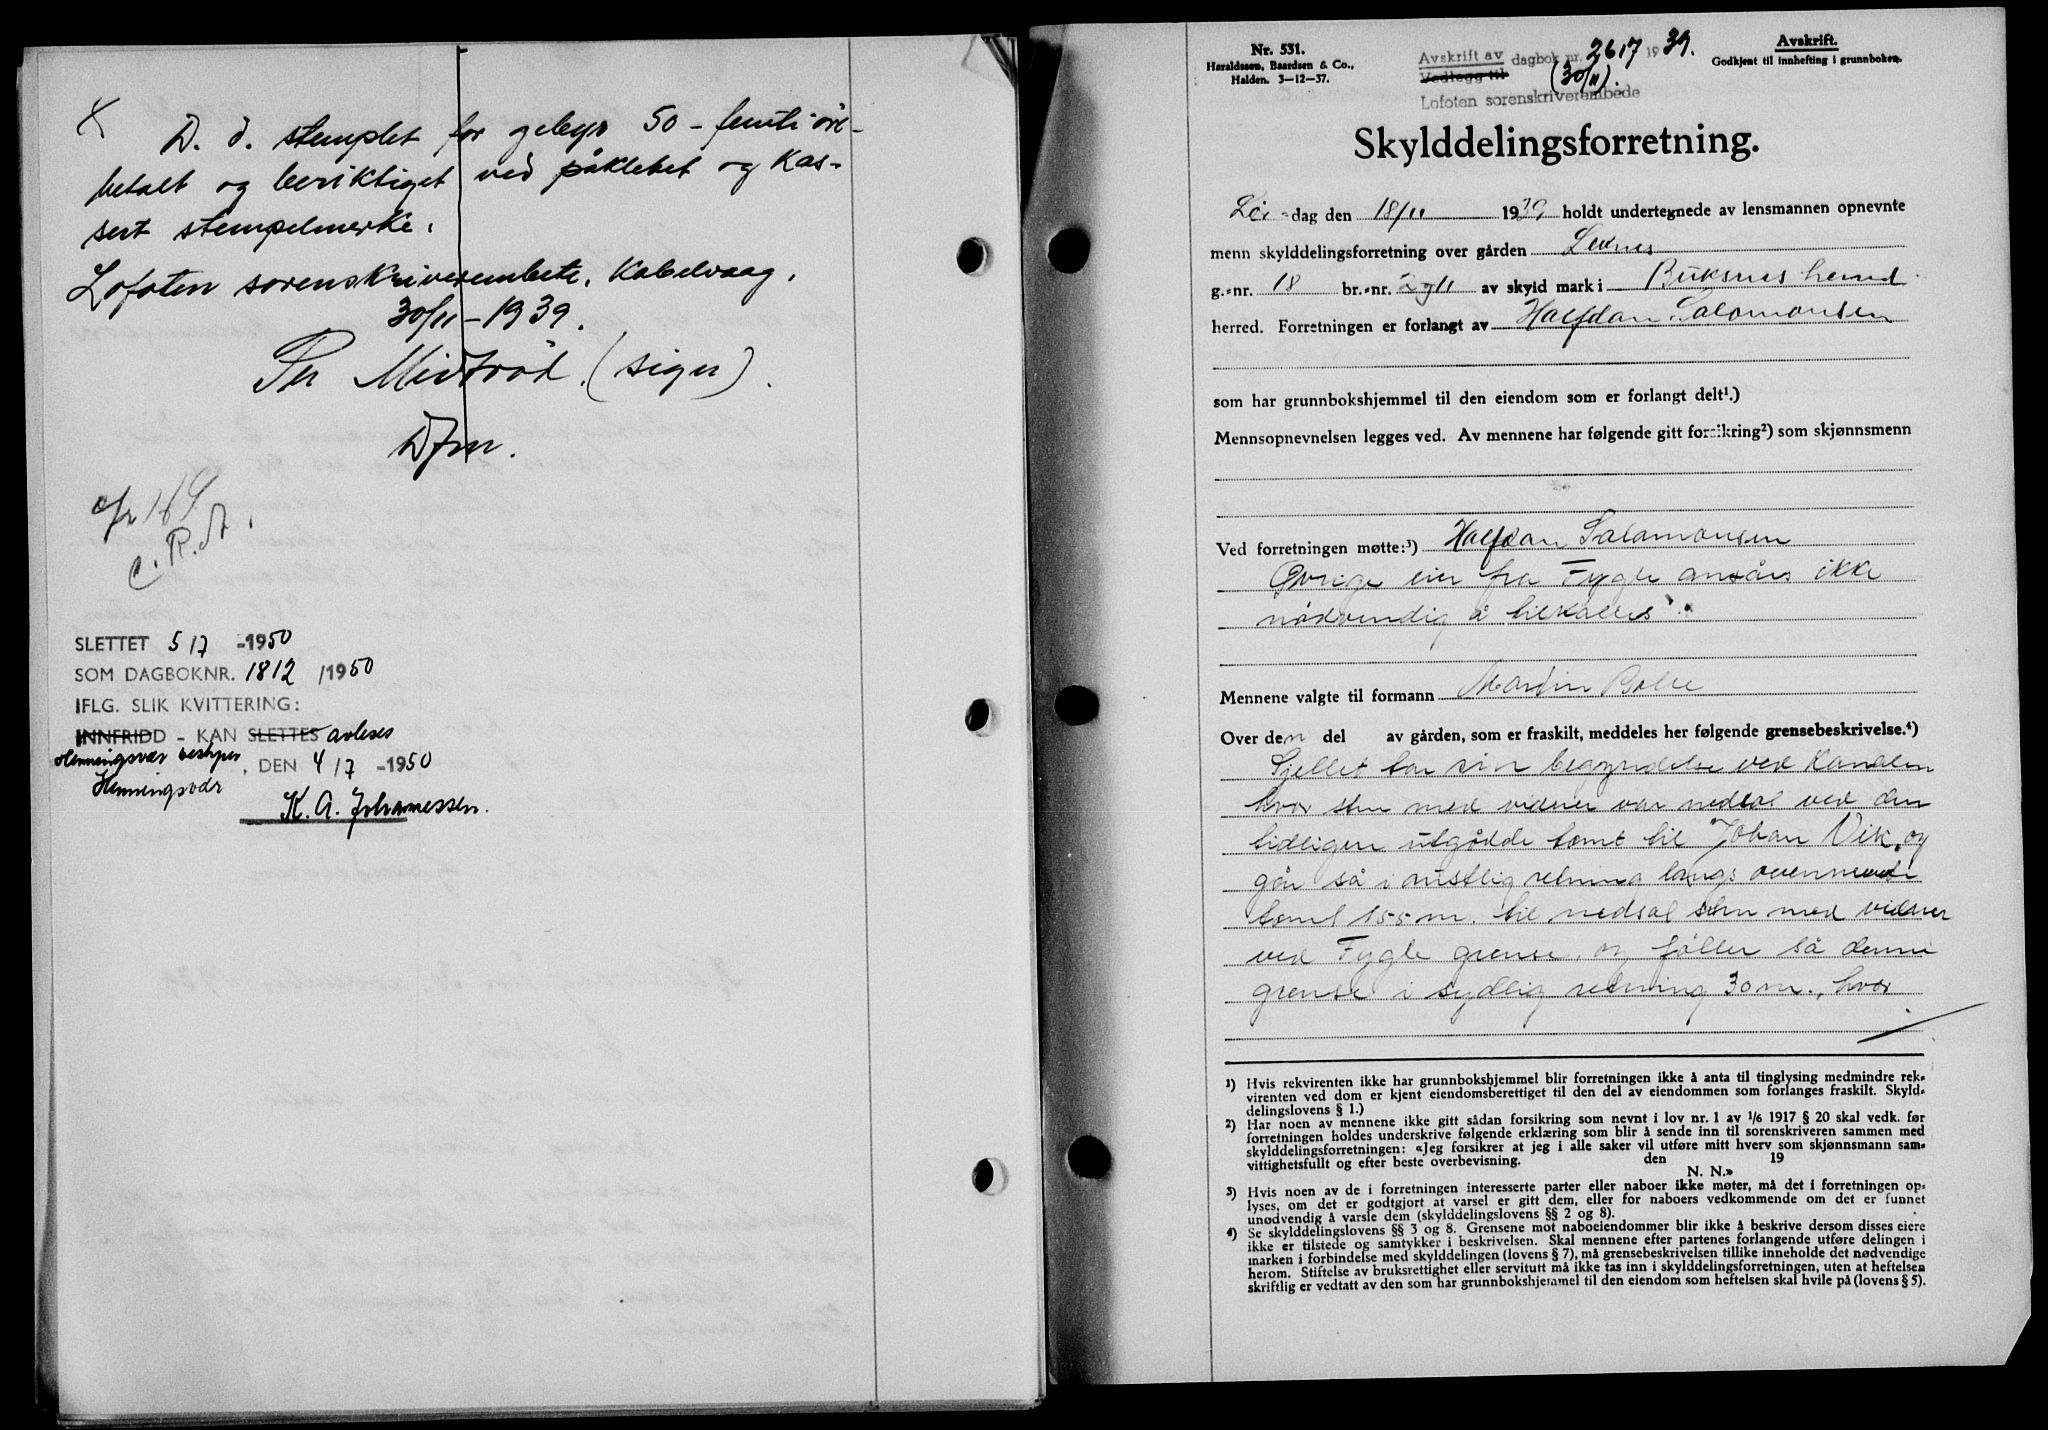 X
D. d. stemplet for gebyr 50 - femti öre -
betalt og beriktiget ved påklebet og kas-
sert stempelmerke.
Lofoten sorenskriverembete, Kabelvaag,
30/11 - 1939.
Per Midtröd. (sign).
Dfm.
169
C. R. A.
SLETTET 5/7 -1950
SOM DAGBOKNR. 1812 /1950
IFLG. SLIK KVITTERING:
INNFRIDD - KAN SLETTES avleses
Henningsvær
, DEN 4/7 -1950
Henningsvær
K. A. Johannessen.
Nr. 531.
Haraldssen, Baardsen & Co.,
Halden. 3-12-37.
Avskrift av dagbok nr. 2617 1939.
Vedlegg til
(30/11).
Lofoten sorenskriverembede
Avskrift.
Godkjent til innhefting i grunnboken.
Skylddelingsforretning.
Lör-dag den 18/11 1939 holdt undertegnede av lensmannen opnevnte
menn skylddelingsforretning over gården Leknes
g.-nr. 18 br.-nr. 2 og 11 av skyld mark i Buksnes herred
herred. Forretningen er forlangt av Halfdan Salamonsen
som har grunnbokshjemmel til den eiendom som er forlangt delt¹.)
Mennsopnevnelsen legges ved. Av mennene har følgende gitt forsikring²) som skjønnsmenn
Ved forretningen møtte:³) Halfdan Salamonsen
Övrige eier fra Fygle ansåes ikke
nödvendig å tilkalles.
Mennene valgte til formann Martin Bolle
Over den del av gården, som er fraskilt, meddeles her følgende grensebeskrivelse.⁴)
Sjellet tar sin begyndelse ved Kanalen
hvor sten med vidner var nedsat ved den
tidligere utgådde tomt til Johan Vik, og
går så i östlig retning langs ovennevnte
tomt 155 m. til nedsat sten med vidner
ved Fygle grense, og föller så denne
grense i sydlig retning 30 m., hvor
¹) Hvis rekvirenten ikke har grunnbokshjemmel blir forretningen ikke å anta til tinglysing medmindre rek-
virenten ved dom er kjent eiendomsberettiget til den del av eiendommen som forlanges fraskilt. Skyld-
delingslovens § 1.)
²) Har noen av mennene ikke gitt sådan forsikring som nevnt i lov nr. 1 av 1/6 1917 § 20 skal vedk. før
forretningen holdes underskrive følgende erklæring som blir å sende inn til sorenskriveren sammen med
skylddelingsforretningen: «Jeg forsikrer at jeg i alle saker vil utføre mitt hverv som skjønnsmann sam-
vittighetsfullt og efter beste overbevisning. den 19
N. N.»
³) Hvis noen av de i forretningen interesserte parter eller naboer ikke møter, må det i forretningen op-
lyses, om det er godtgjort at varsel er gitt dem, eller for naboers vedkommende om det er funnet
unødvendig å varsle dem (skylddelingslovens §§ 2 og 8).
⁴) Se skylddelingslovens §§ 3 og 8. Grensene mot naboeiendommer blir ikke å beskrive dersom disses eiere
ikke er tilstede og samtykker i beskrivelsen. Skal mennene efter partenes forlangende utføre delingen i
marken i forbindelse med skylddelingen (lovens § 7), må grensebeskrivelsen tillike inneholde det nødvendige
herom. Stiftelse av bruksrettighet eller servitutt må ikke tas inn i skylddelingsforretningen, uten at heftelsen
skriftlig er vedtatt av den som har grunnbokshjemmel til den eiendom som heftelsen skal hvile på (lovens § 5).